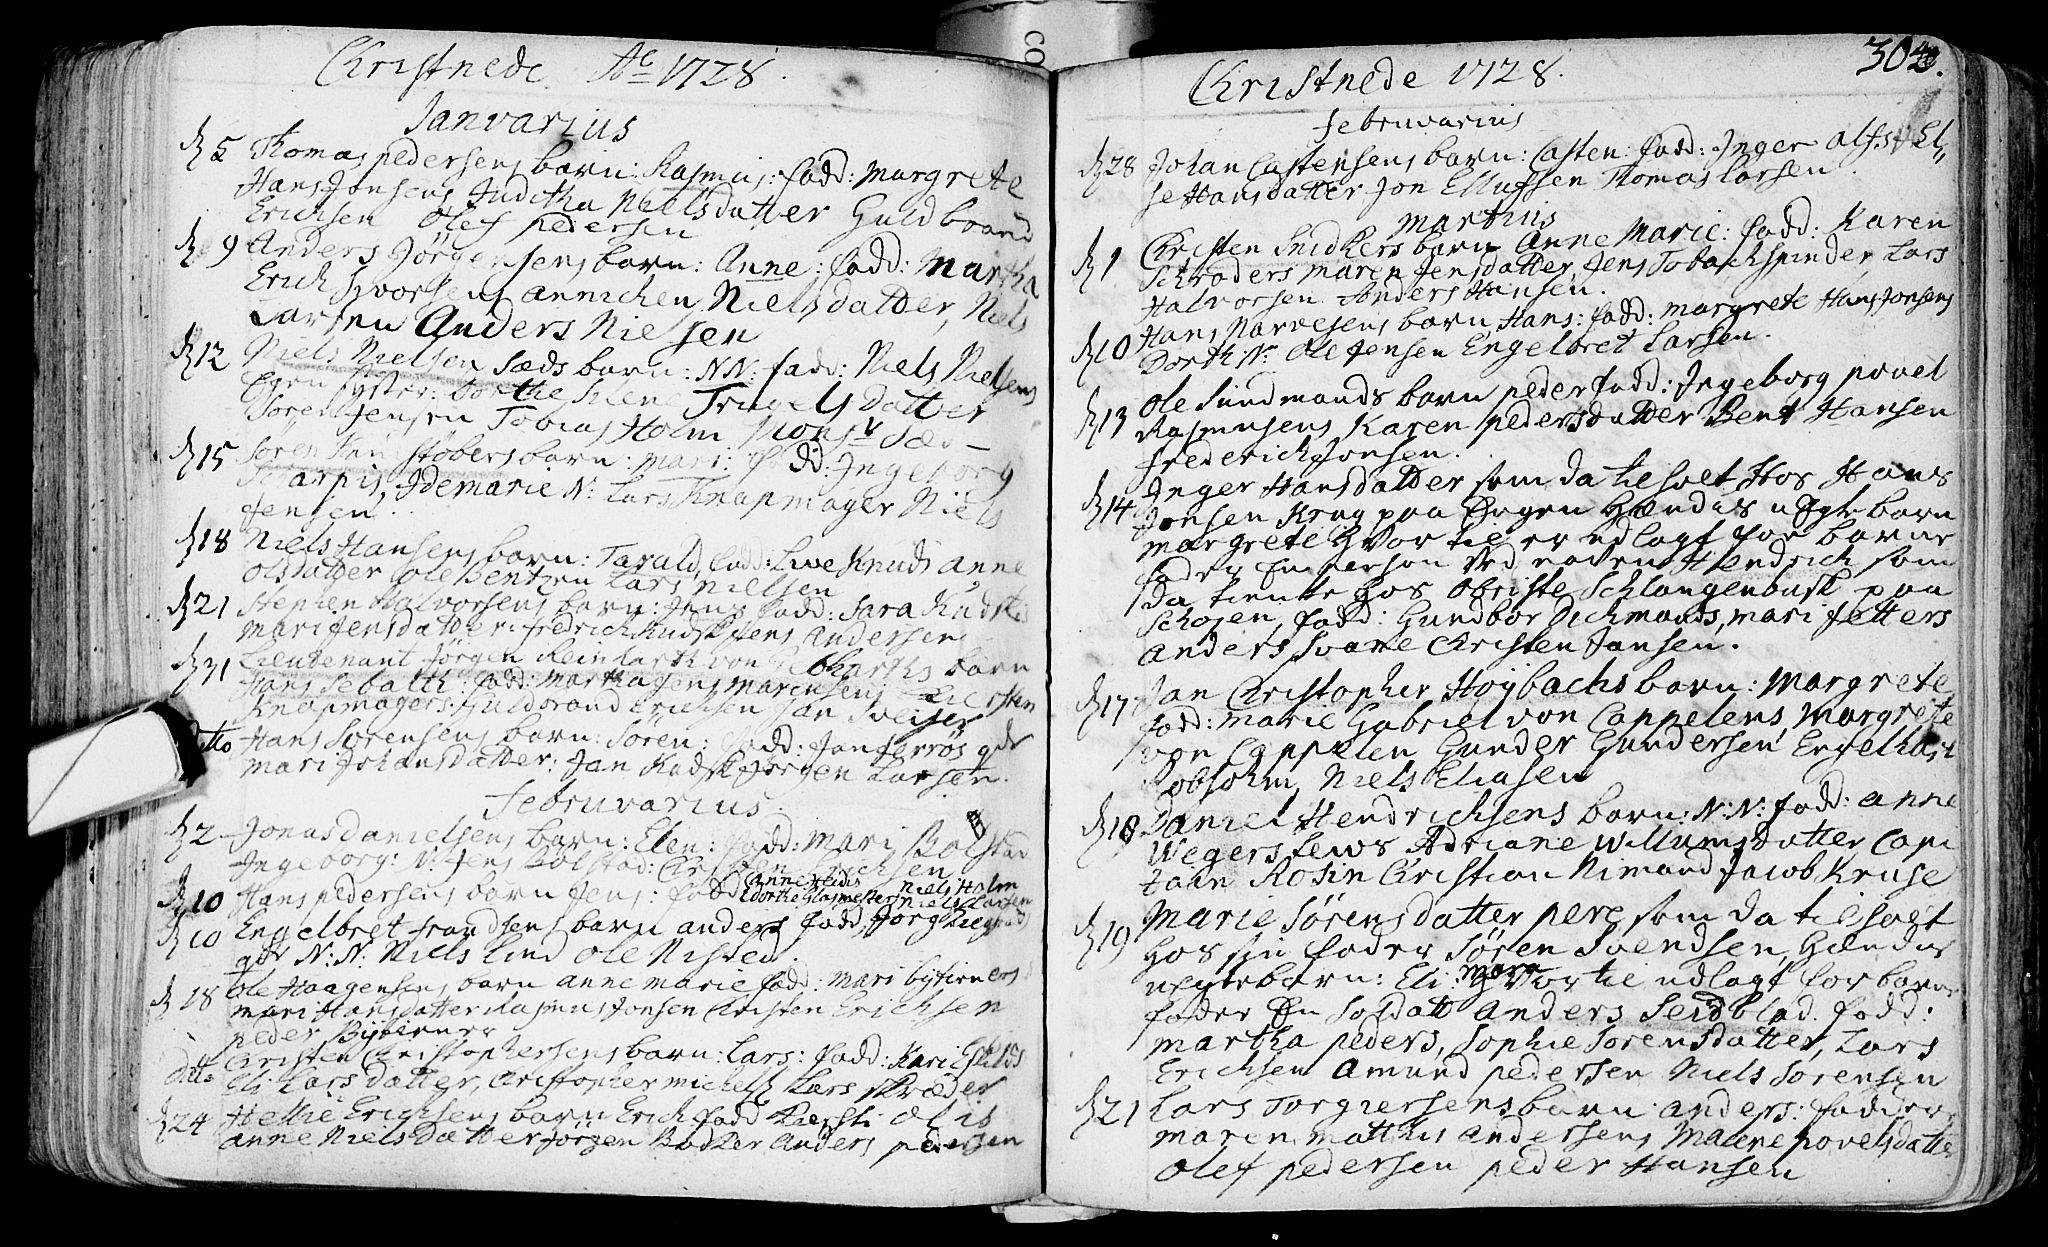 Christnede Ao 1728.
Januarius
d 5 Thomas pedersens barn: Rasmus: fadd: Margrete
Hans Jonsens Juditha Nielsdatter Guldbrand
Erichsen Olef pedersen
d 9 Anders Jörgensens barn: Anne: fadd: Martha
Erich Hvorsens annichen Nielsdatter, Niels
Larsen Anders Nielsen
d 12 Niels Nielsen Sæds barn: NN: fadd: Niels Nielsens
Egen syster: Dorthe Trugelsdatter
Sören Jensen Tobias Holm Monsr Sæd
d 15 Sören barn: mari: fadd: Ingeborg
Idemarie N: Lars Knapmager Niels
Jensen.
d 18 Niels Hansens barn: Tarald, fadd: Live Knuds anne
Olsdatter ole Bentsen Lars Nielsen
d 21 Stephen Halvorsens barn: Jens fadd: Sara
Mari Jensdatter: fredrich Jens Andersen
d 31 Lieutenant Jörgen Reinhardt von barn
Hans Sebalth: fadd: Martha Jens Marensens
Knapmagers: Guldbrand Erichsen Jan Sveiser
Ditto Hans Sörensens barn: Sören: fadd: Jan
mari Johansdatter: Jan Jörgen Larsen.
Februvarius.
d 2 Jonas danielsens barn: Elen: fadd: Mari Bolstad
Ingeborg: N: Jens Bolstad: Christen Erichsen
d 10 Hans pedersens barn Jens: fadd Anne
Dorthe Glasmester Niels Holm
Niels Larsen
d 10 Engelbret frandsens barn anders fadd: Jörg
N: N: Niels lind ole
d 18 Ole Haagensens barn anne marie fadd: mari bytiener
mari Hansdatter Rasmus Jonsen Christen Erichsen
peder Bytiener
ditto Christen Christophersens barn: Lars: fadd: Kari
Eli Larsdatter, Christopher michels Lars skræder
d 24 Hellie Erichsens barn Erich fadd
anne Nielsdatter Jörgen Bödker Anders pedersen
304.
Christnede 1728.
februvarius
d 28 Johan Castensens barn: Casten: fadd: Inger alfs El,,
se Hansdatter Jon Ellufsen Thomas Larsen.
Martius
d 1 Christen Snidkers barn Anne Marie: fadd: Karen
Schröders maren Jensdatter, Jens Tobachspinder, Lars
Halvorsen Anders Hansen.
d 10 Hans Narvesens barn Hans: fadd: margrete Hans Jonsens
Dorth: N: Ole Jensen Engelbret Larsen.
d 13 Ole Sundmands barn peder fadd: Ingeborg povel
Rasmusens Karen pedersdatter Bent Hansen
frederich Jonsen.
d 14 Inger Hansdatter som da til hold Hos Hans
Jonsen Krag paa Öygen Hændis uEgte barn
margrete Hvor til er udlagt for barne
fader En person Ved naven Hendrich som
Da tiente Hos Obriste Schlangenbusk paa
Schojen, fadd: Gundbor Dichmands, mari Jetters
anders Svane Christen Jansen.
d 17 Jan Christopher Höybachs barn: Margrete
fadd: Marie Gabriel von Cappelens, Margrete
von Cappelen Gunder Gundersen Engelhart
Robsohm, Niels Eliasen
d 18 Daniel Hendrichsens barn: N: N: fadd: Anne
Wegerslews Adriane Willumsdatter Capi
tain Rosin Christian Nimand Jacob Kruse
d 19 Marie Sörensdatter som da til holt
Hos sin fader Sören Svendsen, Hændis
uEgte barn: Eli: Mari Hvor til udlagt for barne
fader En Soldatt Anders Seidblad. fadd:
martha peders, Sophie Sorensdatter, Lars
Erichsen Amund pedersen Niels Sorensen
d 21 Lars Torgiersens barn: anders: faddere
maren matthis andersens, Malene povelsdatter
Olef pedersen peder Hansen